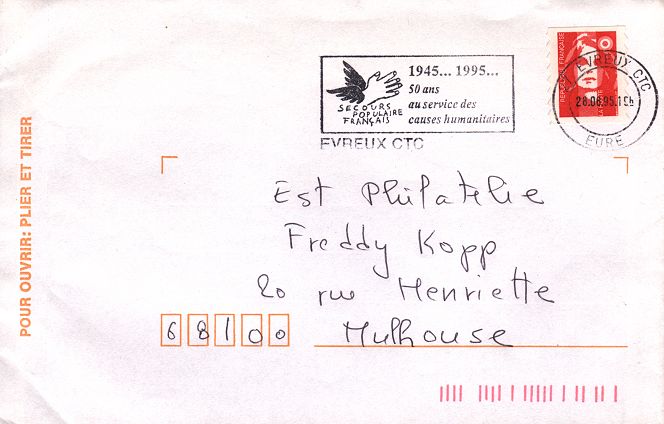 POUR OUVRIR: PLIER ET TIRER
SECOURS
POPULAIRE
FRANÇAIS
1945... 1995...
50 ans
au service des
causes humanitaires
EVREUX CTC
EVREUX CTC
EURE
Est Philatelie
Freddy Kopp
20 rue Henriette
68100 Mulhouse